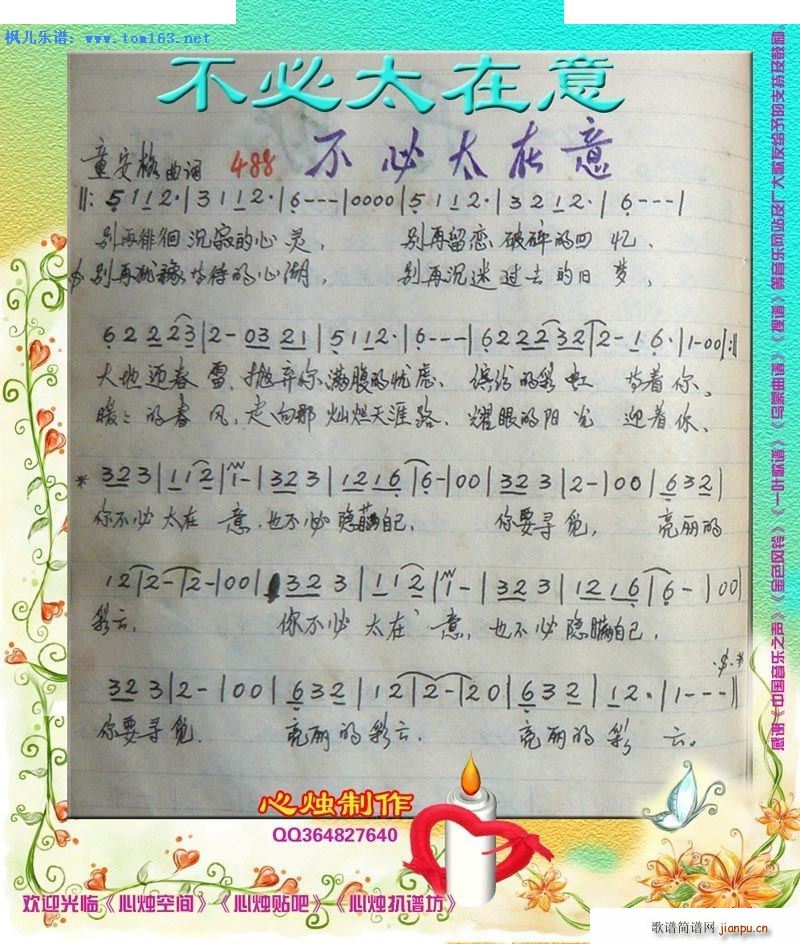 枫儿乐谱：www.tom163.net
不必太在意
童安格曲词 488 不必太在意
‖: 5 1 1 2· | 3 1 1 2· | 6 - - - | 0 0 0 0 | 5 1 1 2· | 3 2 1 2· | 6 - - - |
别再徘徊沉寂的心灵， 别再留恋破碎的回忆、
别再犹豫等待的心湖， 别再沉迷过去的旧梦，
6 2 2 2 2 3 | 2 - 0 3 2 1 | 5 1 1 2· | 6 - - - | 6 2 2 2 3 2 | 2 - 1 6· | 1 - 0 0 :‖
大地迎春雷，抛弃你满腹的忧虑， 缤纷的彩虹 等着你、
暖暖的春风，走向那灿烂天涯路、 耀眼的阳光 迎着你、
* 3 2 3 | 1 1 2 | 1 - | 3 2 3 | 1 2 1 6 | 6 - | 0 0 | 3 2 3 | 2 - | 0 0 | 6 3 2 |
你不必太在意，也不必隐瞒自己， 你要寻觅， 亮丽的
1 2 | 2 - | 2 - | 0 0 | 3 2 3 | 1 1 2 | 1 - | 3 2 3 | 1 2 1 6 | 6 - | 0 0 |
彩云， 你不必太在意，也不必隐瞒自己，
3 2 3 | 2 - | 0 0 | 6 3 2 | 1 2 | 2 - | 2 0 | 6 3 2 | 1 2· | 1 - - - ‖
你要寻觅、 亮丽的彩云、 亮丽的彩云。
心烛制作
QQ364827640
欢迎光临《心烛空间》《心烛贴吧》《心烛扒谱坊》
感谢《中国音乐之声》《金色风铃》《一叶歌谱》《乌蒙曲谱》《搜谱》等音乐网站及广大歌友给予的支持及鼓励
歌谱简谱网
jianpu.cn